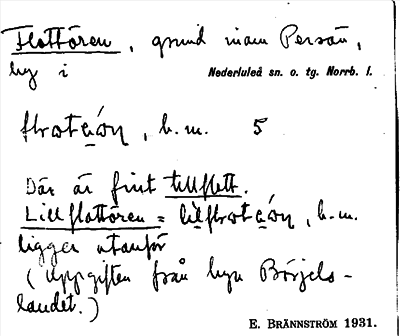 Flottören, grund inom Persön,
by i Nederluleå sn. o. tg. Norrb. l.
b. m. 5
Där är fint tillflett.
Lillflottören = b. m.
ligger utanför
(Uppgiften från byn Börjels-
landet.)
E. BRÄNNSTRÖM 1931.